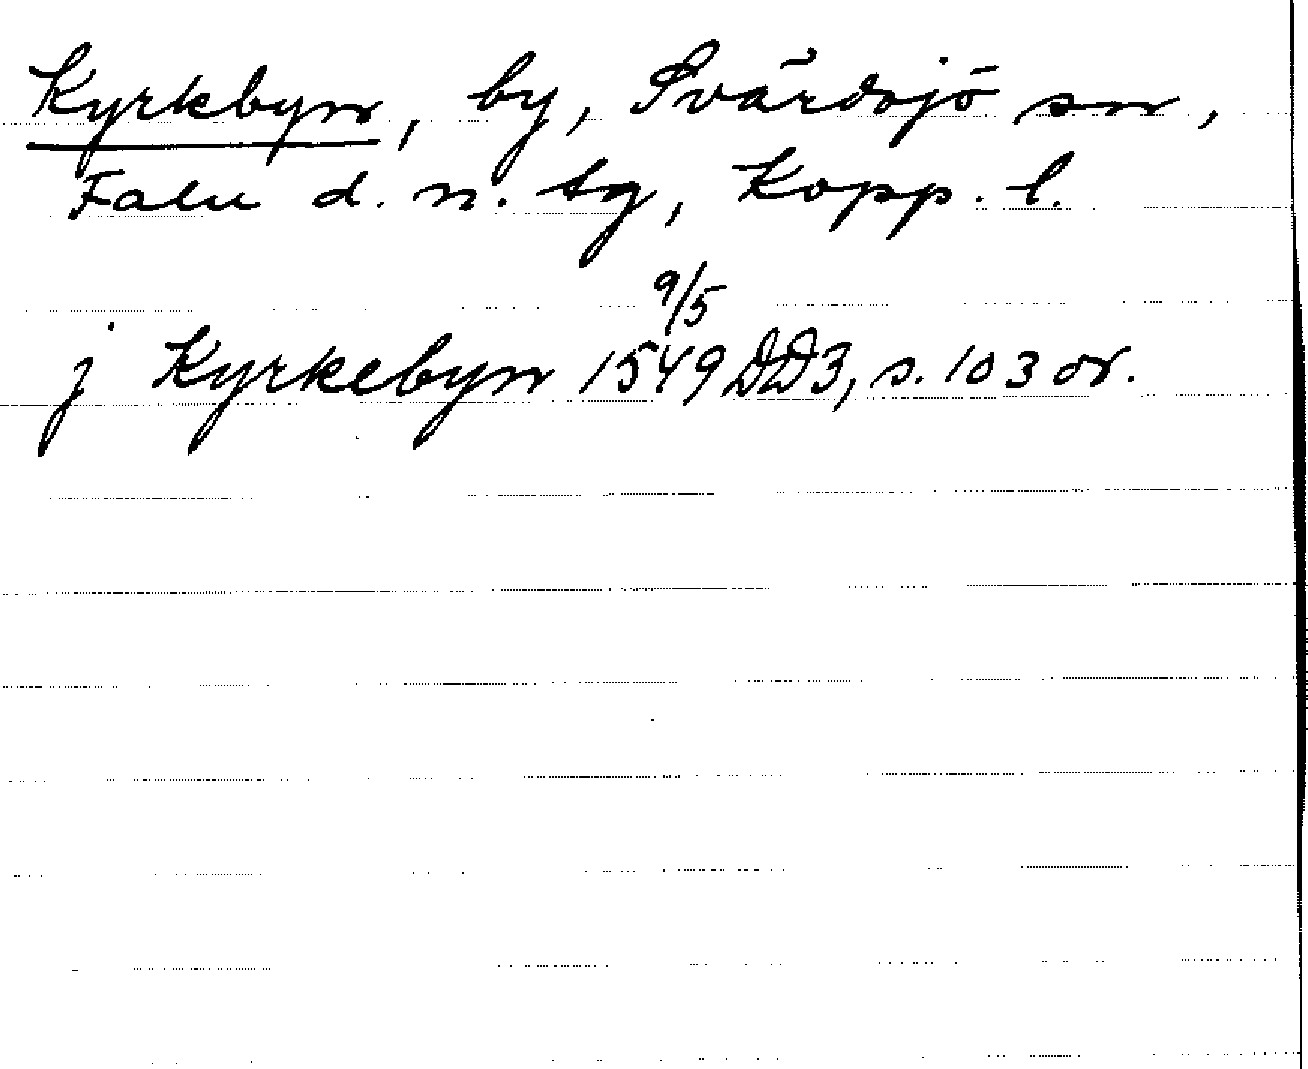 Kyrkbyn, by, Svärdsjö sn,
Falu d. n. tg, Kopp. l.
9/5
j Kyrkebyn 1549 DD3, s. 103 or.